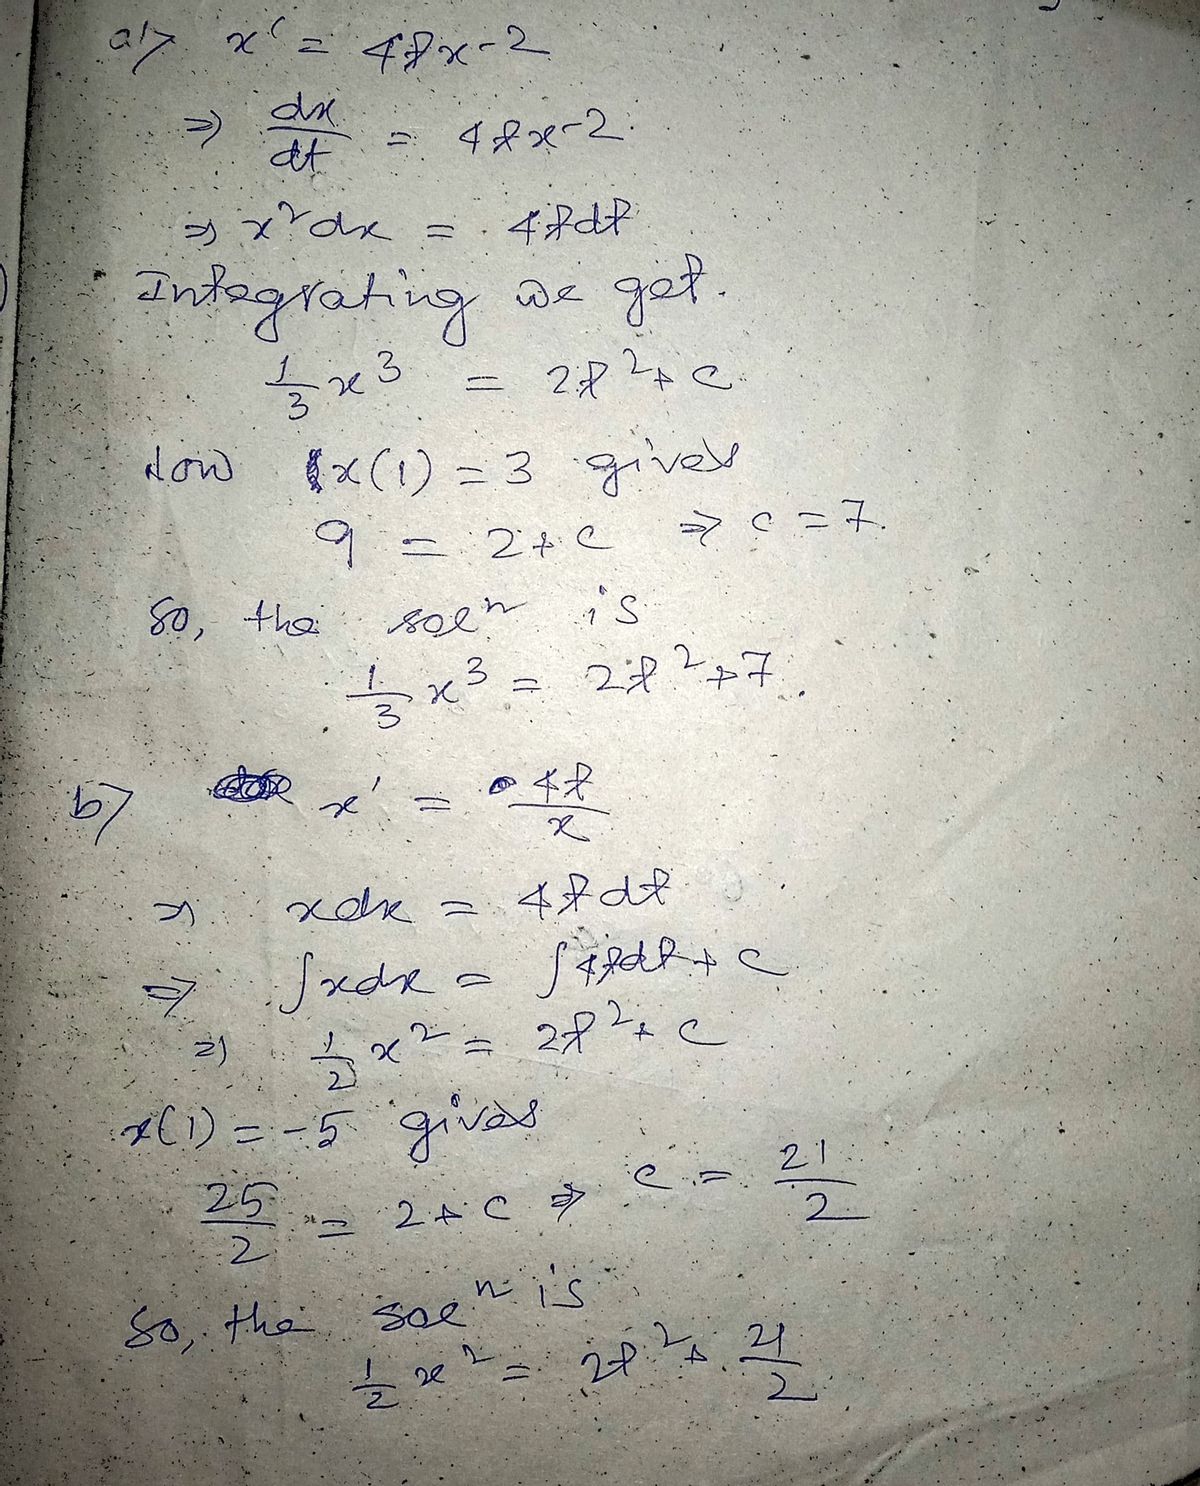 a) x' = 4tx-2
⇒ dx/dt = 4tx-2.
⇒ x²dx = 4tdt
Integrating we get.
1/3 x³ = 2t²+c.
Now x(1) = 3 gives
9 = 2+c ⇒ c = 7.
So, the solⁿ is
1/3 x³ = 2t²+7.
b) x' = 4t/x
⇒ xdx = 4tdt
⇒ ∫xdx = ∫4tdt+c
⇒ 1/2 x² = 2t²+c
x(1) = -5 gives
25/2 = 2+c ⇒ c = 21/2
So, the solⁿ is
1/2 x² = 2t²+21/2